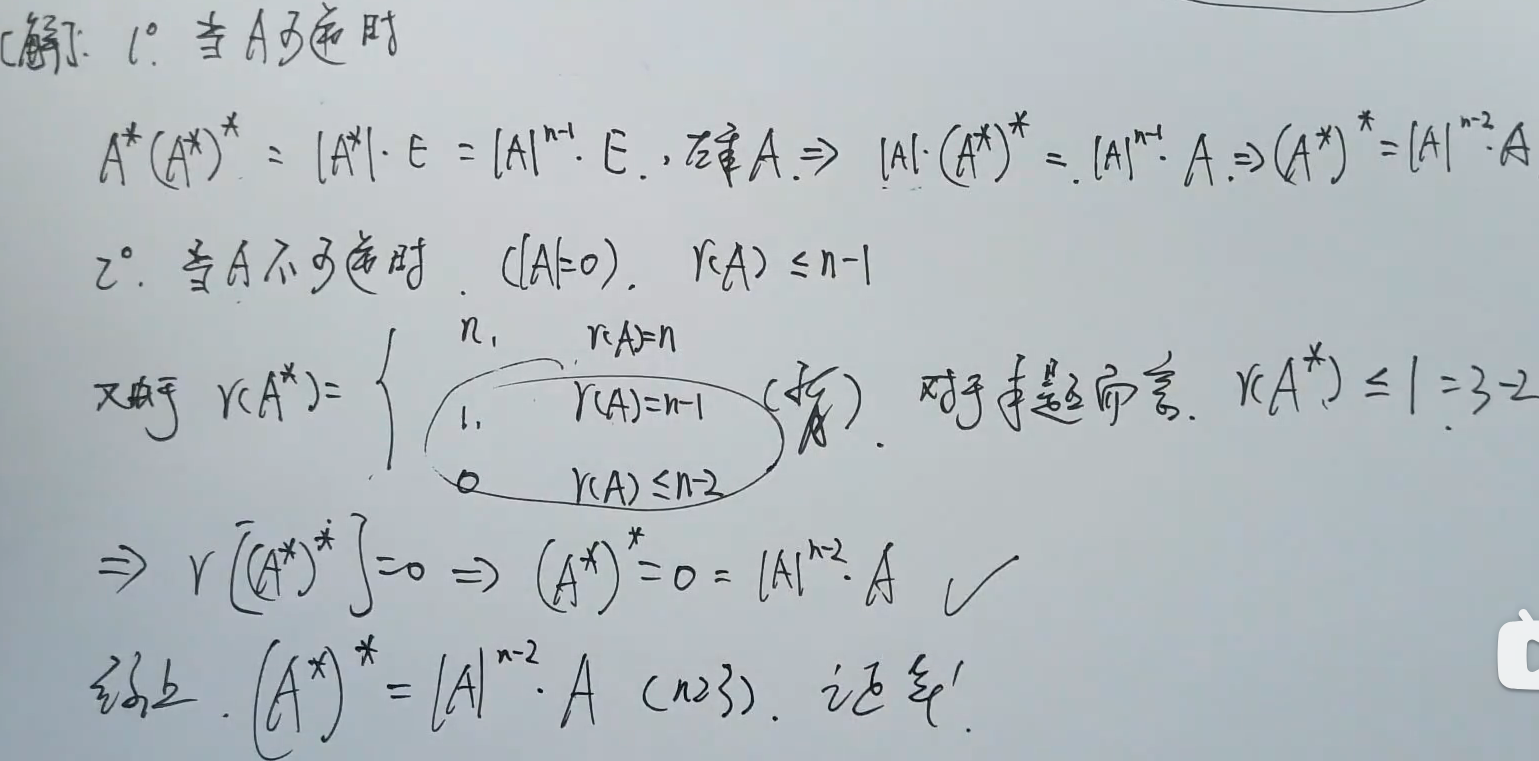 [解]: 1°. 当A可逆时
A*(A*)* = |A*|·E = |A|^{n-1}·E., 左乘A.⇒ |A|·(A*)* = |A|^{n-1}·A.⇒(A*)* = |A|^{n-2}·A
2°. 当A不可逆时. (|A|=0). r(A) ≤ n-1
又由于 r(A*)= { n, r(A)=n
1, r(A)=n-1 . 对于本题而言. r(A*) ≤ 1 = 3-2
0 r(A) ≤ n-2
⇒ r[(A*)*]=0 ⇒ (A*)* = 0 = |A|^{n-2}·A ✓
综上. (A*)* = |A|^{n-2}·A (n≥3). 证毕!